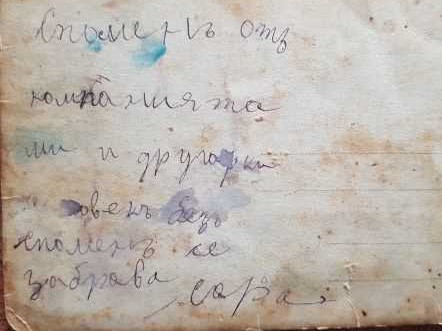 Споменъ отъ
компанията
ми и другарки
овекъ безъ
споменъ се
забрава
Сара